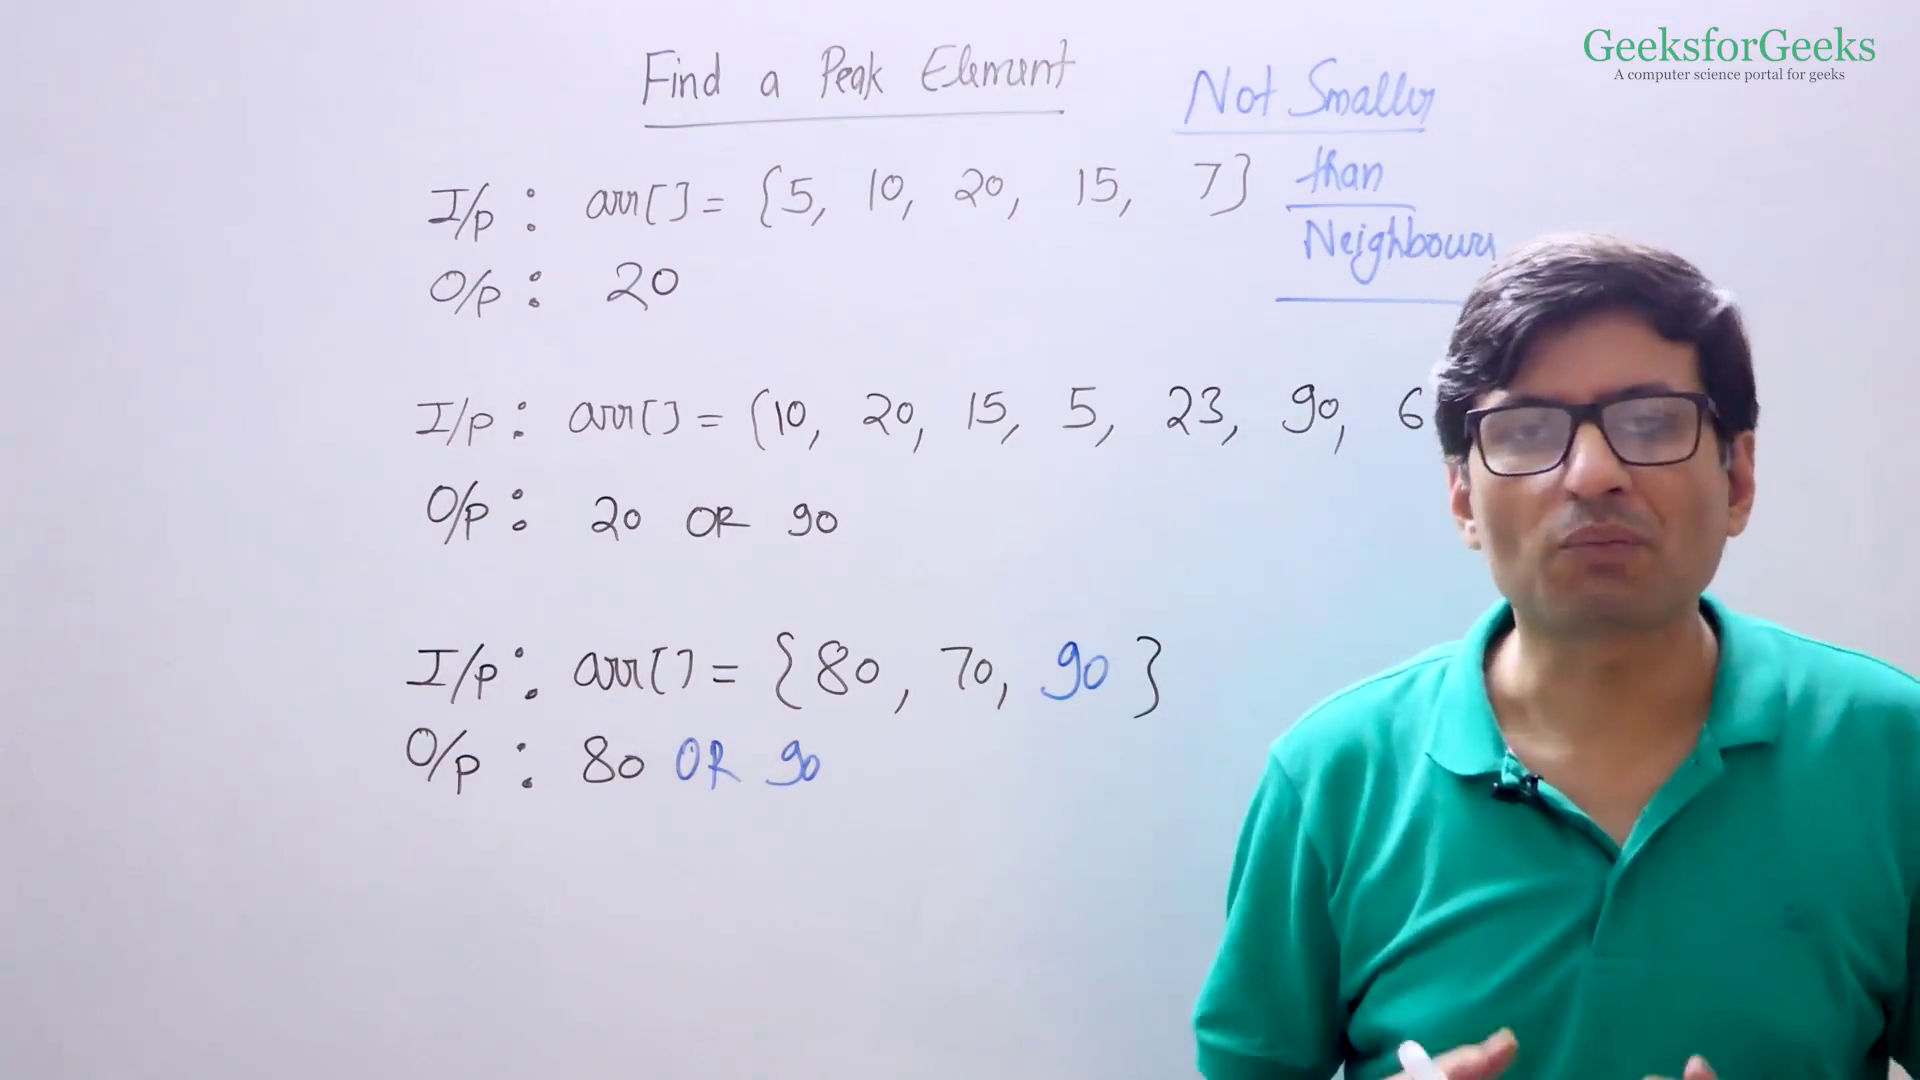 GeeksforGeeks
A computer science portal for geeks
Find a Peak Element
Not Smaller
than
Neighbours
I/p : arr[] = {5, 10, 20, 15, 7}
O/p : 20
I/p : arr[] = {10, 20, 15, 5, 23, 90, 6
O/p : 20 OR 90
I/p : arr[] = {80, 70, 90}
O/p : 80 OR 90